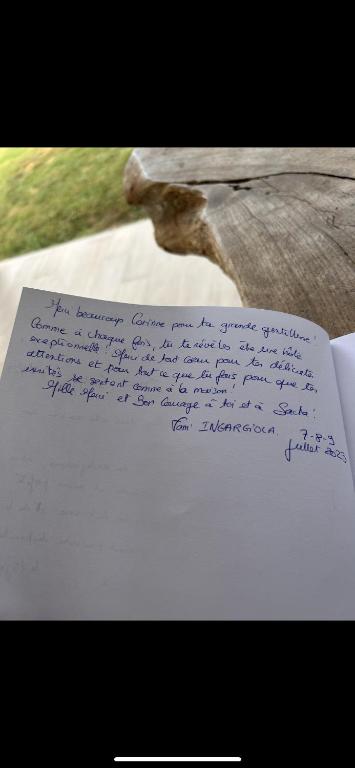 Merci beaucoup Corinne pour ta grande gentillesse!
Comme à chaque fois, tu te révèles être une hôte
exceptionnelle! Merci de tout coeur pour tes délicates
attentions et pour tout ce que tu fais pour que tes
invités se sentent comme à la maison!
Mille Merci et Bon Courage à toi et à
Fami INGARGIOLA. 7-8-9
Juillet 2023